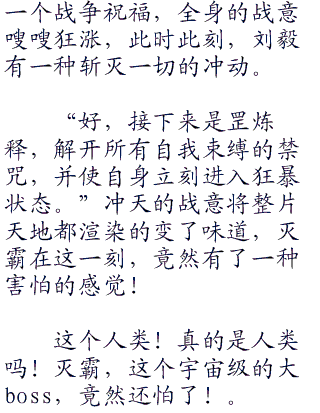 一个战争祝福，全身的战意
嗖嗖狂涨，此时此刻，刘毅
有一种斩灭一切的冲动。
“好，接下来是罡炼
释，解开所有自我束缚的禁
咒，并使自身立刻进入狂暴
状态。”冲天的战意将整片
天地都渲染的变了味道，灭
霸在这一刻，竟然有了一种
害怕的感觉！
这个人类！真的是人类
吗！灭霸，这个宇宙级的大
boss，竟然还怕了！。